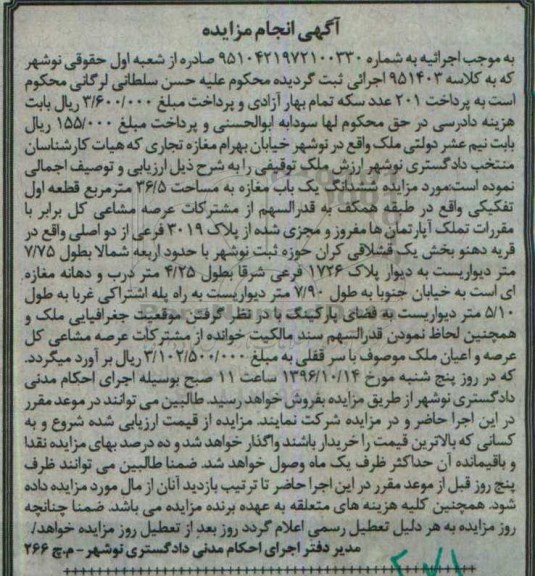 آگهی انجام مزایده
به موجب اجرائیه به شماره ۹۵۱۰۴۲۱۹۷۲۱۰۰۳۳۰ صادره از شعبه اول حقوقی نوشهر
که به کلاسه ۹۵۱۴۰۳ اجرائی ثبت گردیده محکوم علیه حسن سلطانی لرگانی محکوم
است به پرداخت ۲۰۱ عدد سکه تمام بهار آزادی و پرداخت مبلغ ۳/۶۰۰/۰۰۰ ریال بابت
هزینه دادرسی در حق محکوم لها سودابه ابوالحسنی و پرداخت مبلغ ۱۵۵/۰۰۰ ریال
بابت نیم عشر دولتی ملک واقع در نوشهر خیابان بهرام مغازه تجاری که هیات کارشناسان
منتخب دادگستری نوشهر ارزش ملک توقیفی را به شرح ذیل ارزیابی و توصیف اجمالی
نموده است:مورد مزایده ششدانگ یک باب مغازه به مساحت ۳۶/۵ مترمربع قطعه اول
تفکیکی واقع در طبقه همکف به قدرالسهم از مشترکات عرصه مشاعی کل برابر با
مقررات تملک آپارتمان ها مفروز و مجزی شده از پلاک ۳۰۱۹ فرعی از دو اصلی واقع در
قریه دهنو بخش یک قشلاقی کران حوزه ثبت نوشهر با حدود اربعه شمالا بطول ۷/۷۵
متر دیواریست به دیوار پلاک ۱۷۲۶ فرعی شرقا بطول ۴/۲۵ متر درب و دهانه مغازه
ای است به خیابان جنوبا به طول ۷/۹۰ متر دیواریست به راه پله اشتراکی غربا به طول
۵/۱۰ متر دیواریست به فضای پارکینگ با در نظر گرفتن موقعیت جغرافیایی ملک و
همچنین لحاظ نمودن قدرالسهم سند مالکیت خوانده از مشترکات عرصه مشاعی کل
عرصه و اعیان ملک موصوف با سر قفلی به مبلغ ۳/۱۰۲/۵۰۰/۰۰۰ ریال بر آورد میگردد.
که در روز پنج شنبه مورخ ۱۳۹۶/۱۰/۱۴ ساعت ۱۱ صبح بوسیله اجرای احکام مدنی
دادگستری نوشهر از طریق مزایده بفروش خواهد رسید. طالبین می توانند در موعد مقرر
در این اجرا حاضر و در مزایده شرکت نمایند. مزایده از قیمت ارزیابی شده شروع و به
کسانی که بالاترین قیمت را خریدار باشند واگذار خواهد شد و ده درصد بهای مزایده نقدا
و باقیمانده آن حداکثر ظرف یک ماه وصول خواهد شد. ضمنا طالبین می توانند ظرف
پنج روز قبل از موعد مقرر در این اجرا حاضر تا ترتیب بازدید آنان از مال مورد مزایده داده
شود. همچنین کلیه هزینه های متعلقه به عهده برنده مزایده می باشد. ضمنا چنانچه
روز مزایده به هر دلیل تعطیل رسمی اعلام گردد روز بعد از تعطیل روز مزایده خواهد/
مدیر دفتر اجرای احکام مدنی دادگستری نوشهر - م.چ ۲۶۶